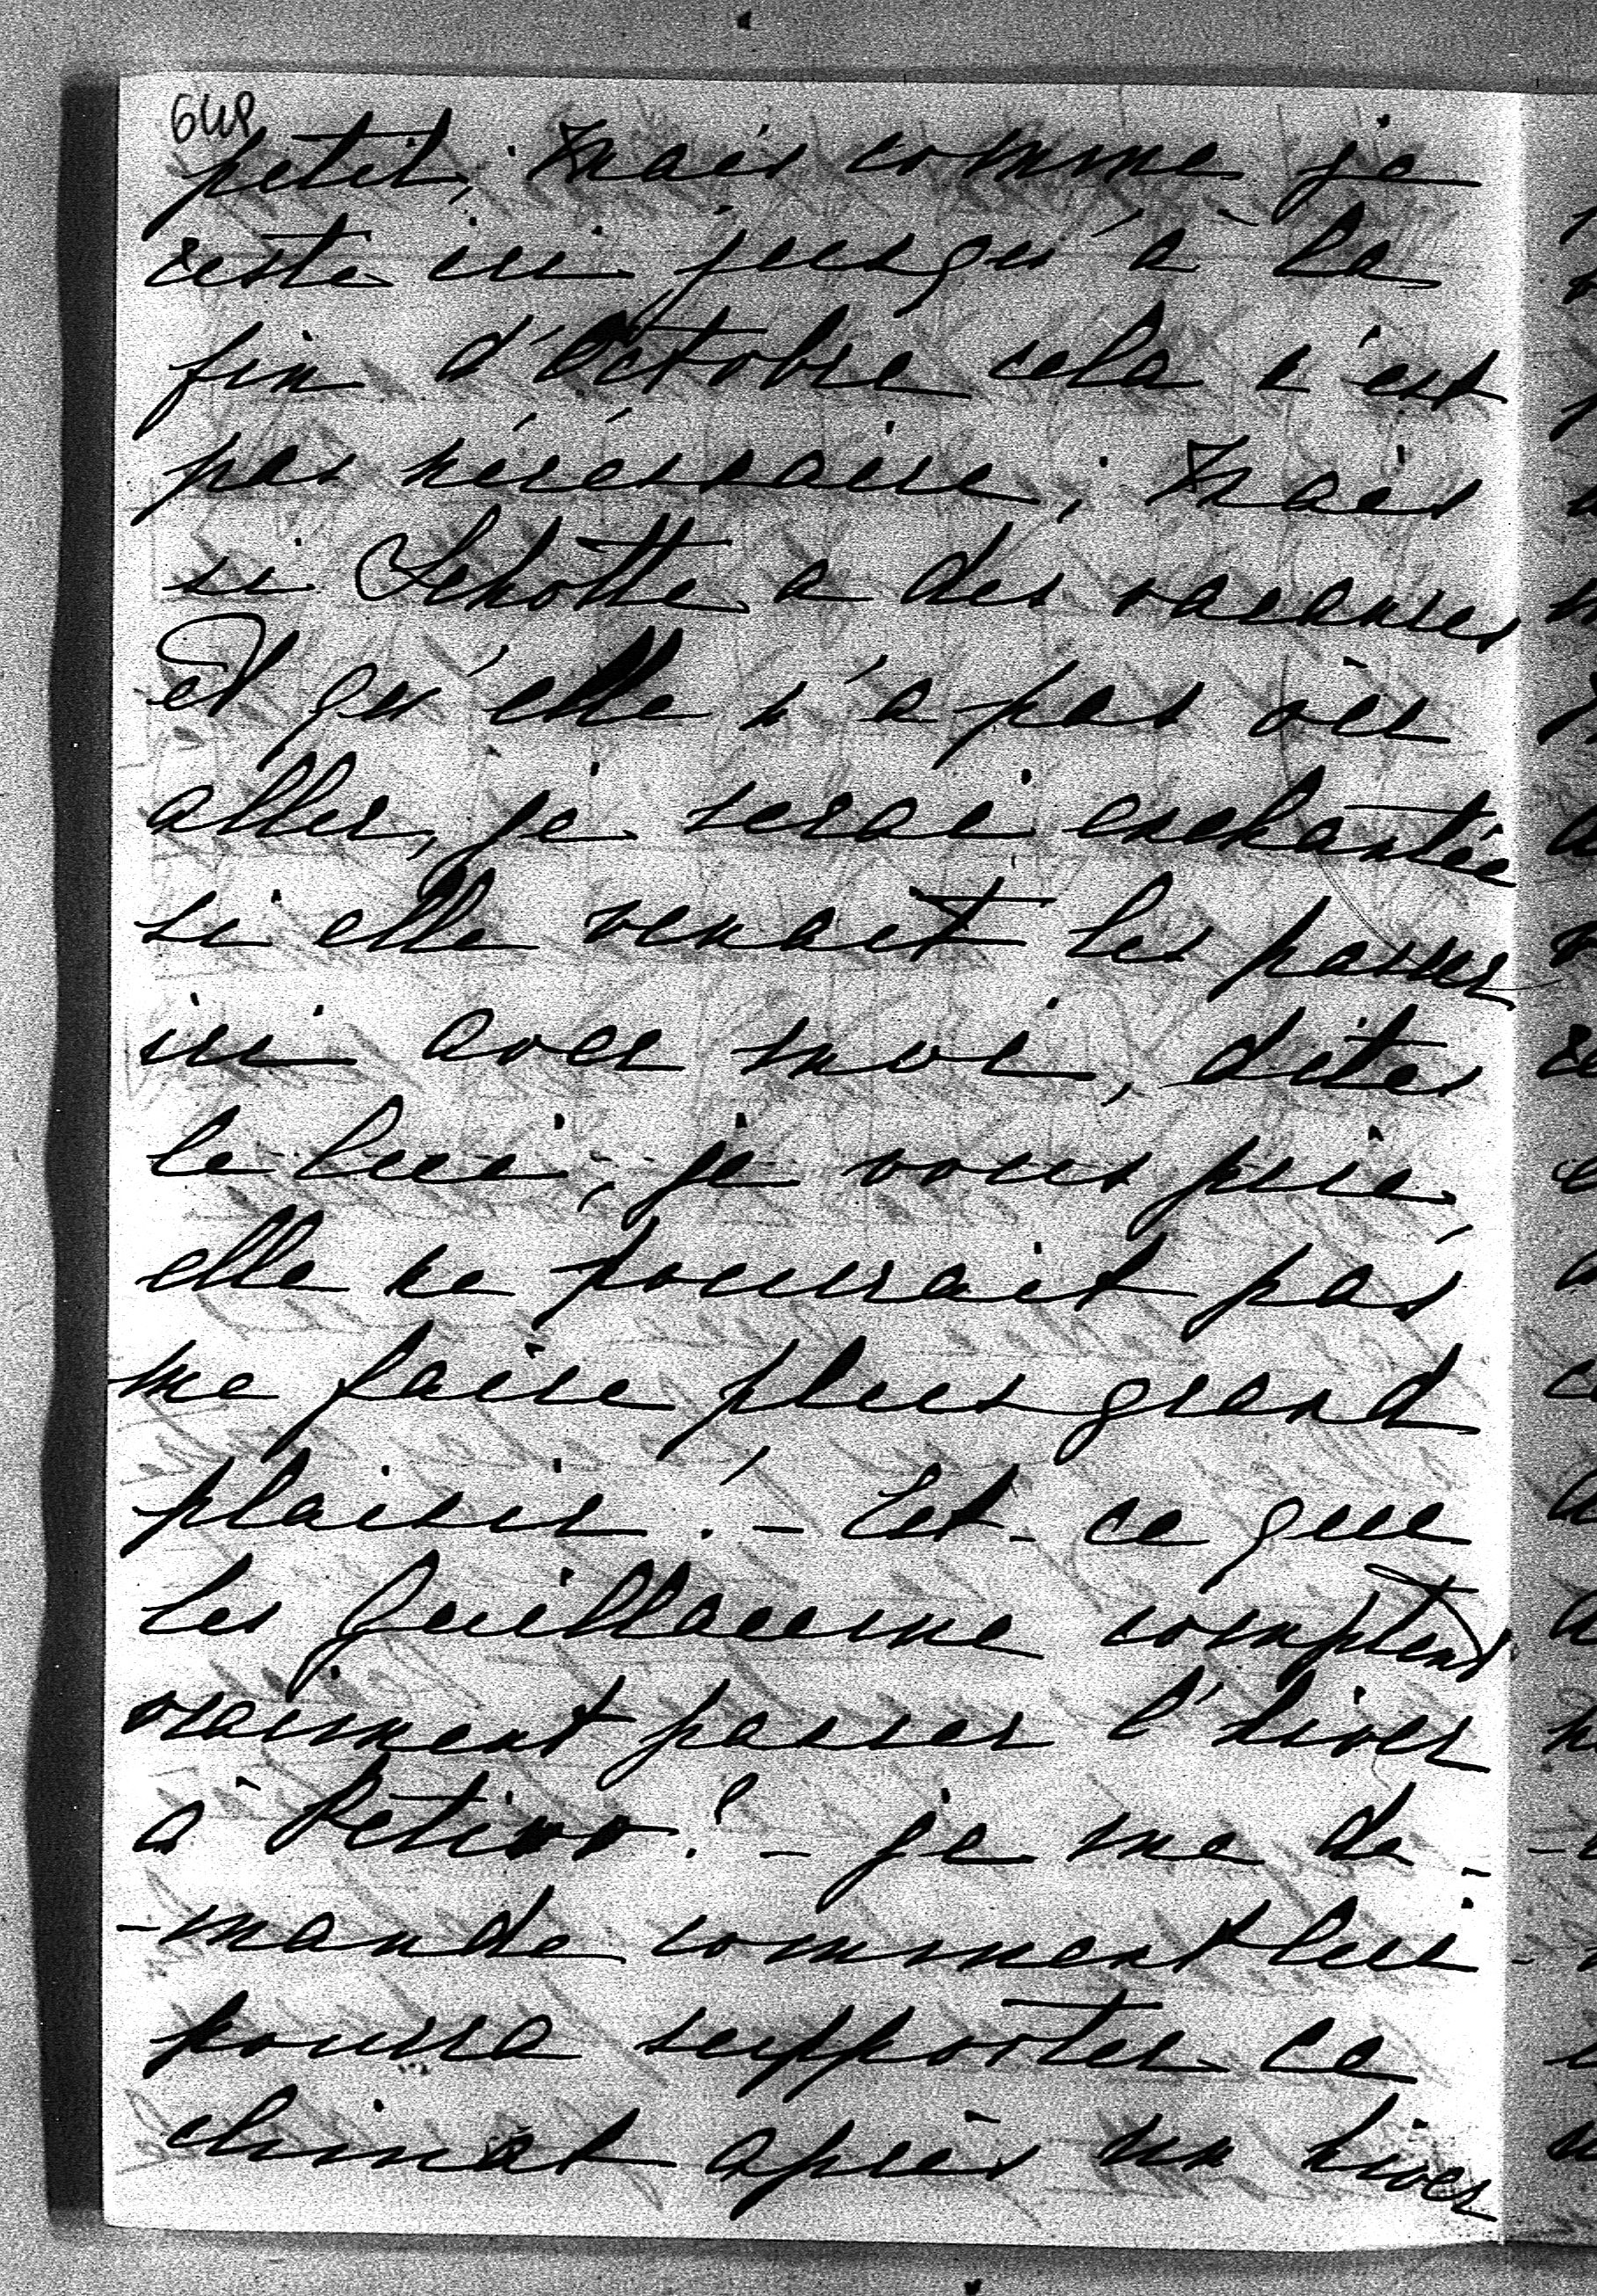 648
petit; mais comme je
reste ici jusqu'à la
fin d'Octobre cela n'est
pas nécessaire; mais
si Schotte a des vacances
et qu'elle n'a pas où
aller, je serai enchantée
si elle venait les passer
ici avec moi, dites
le lui, je vous prie,
elle ne pourrait pas
me faire plus grand
plaisir! – Est-ce que
les Guillaume comptent
vraiment passer l'hiver
à Pétivo? – je me de-
-mande comment lui
pourra supporter ce
climat après un hiver